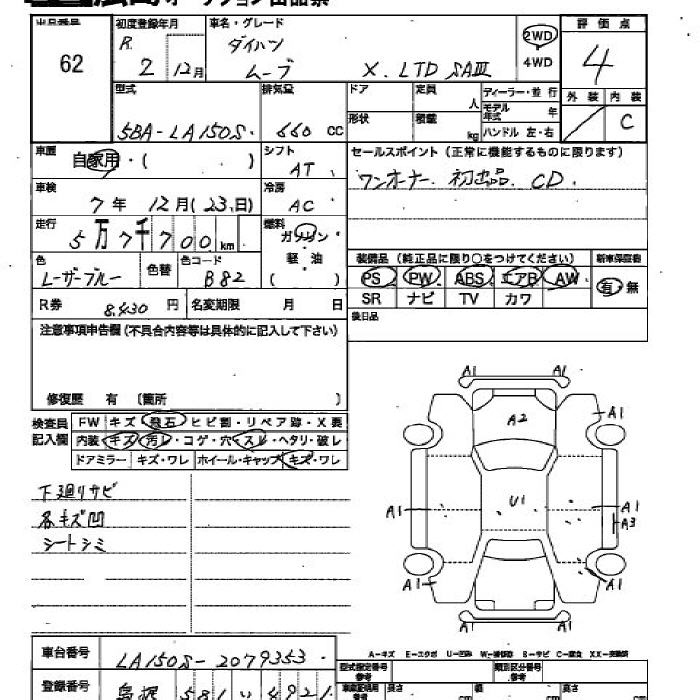 出品番号 初度登録年月 車名・グレード 評価点
62 R 2 12月 ダイハツ ムーブ X. LTD SAⅢ 2WD 4WD 4
外装 内装
C
型式 排気量 ドア 定員 人 ディーラー・並行
5BA-LA150S. 660 CC 形状 積載 kg モデル年式 年
ハンドル 左・右
車歴 自家用・( ) シフト AT セールスポイント(正常に機能するものに限ります)
車検 7年 12月(23,日) 冷房 AC ワンオーナー. 初出品. CD.
走行 5万7千700km 燃料 ガソリン
軽油
( )
色 レーザーブルー 色替 色コード B82
装備品(純正品に限り○をつけてください) 新車保証書
PS PW ABS エアB AW 有 無
SR ナビ TV カワ
R券 8,430円 名変期限 月 日
後日品
注意事項申告欄(不具合内容等は具体的に記入して下さい)
修復歴 有 (箇所 )
検査員記入欄 FW キズ・飛石・ヒビ割・リペア跡・X要
内装・キズ・汚レ・コゲ・穴・スレ・ヘタリ・破レ
ドアミラー・キズ・ワレ ホイール・キャップ・キズ・ワレ
下廻りサビ
各キズ凹
シートシミ
A1 A1
A2 A1
A1 U1 A1
A3
A1 A1
A1 A1
A-キズ E-エクボ U-凹み W-補修跡 S-サビ C-腐食 XX-交換済
車台番号 LA150S-2079353.
型式指定番号 類別区分番号
登録番号 島根 581 い 4921
長さ cm 幅 cm 高さ cm